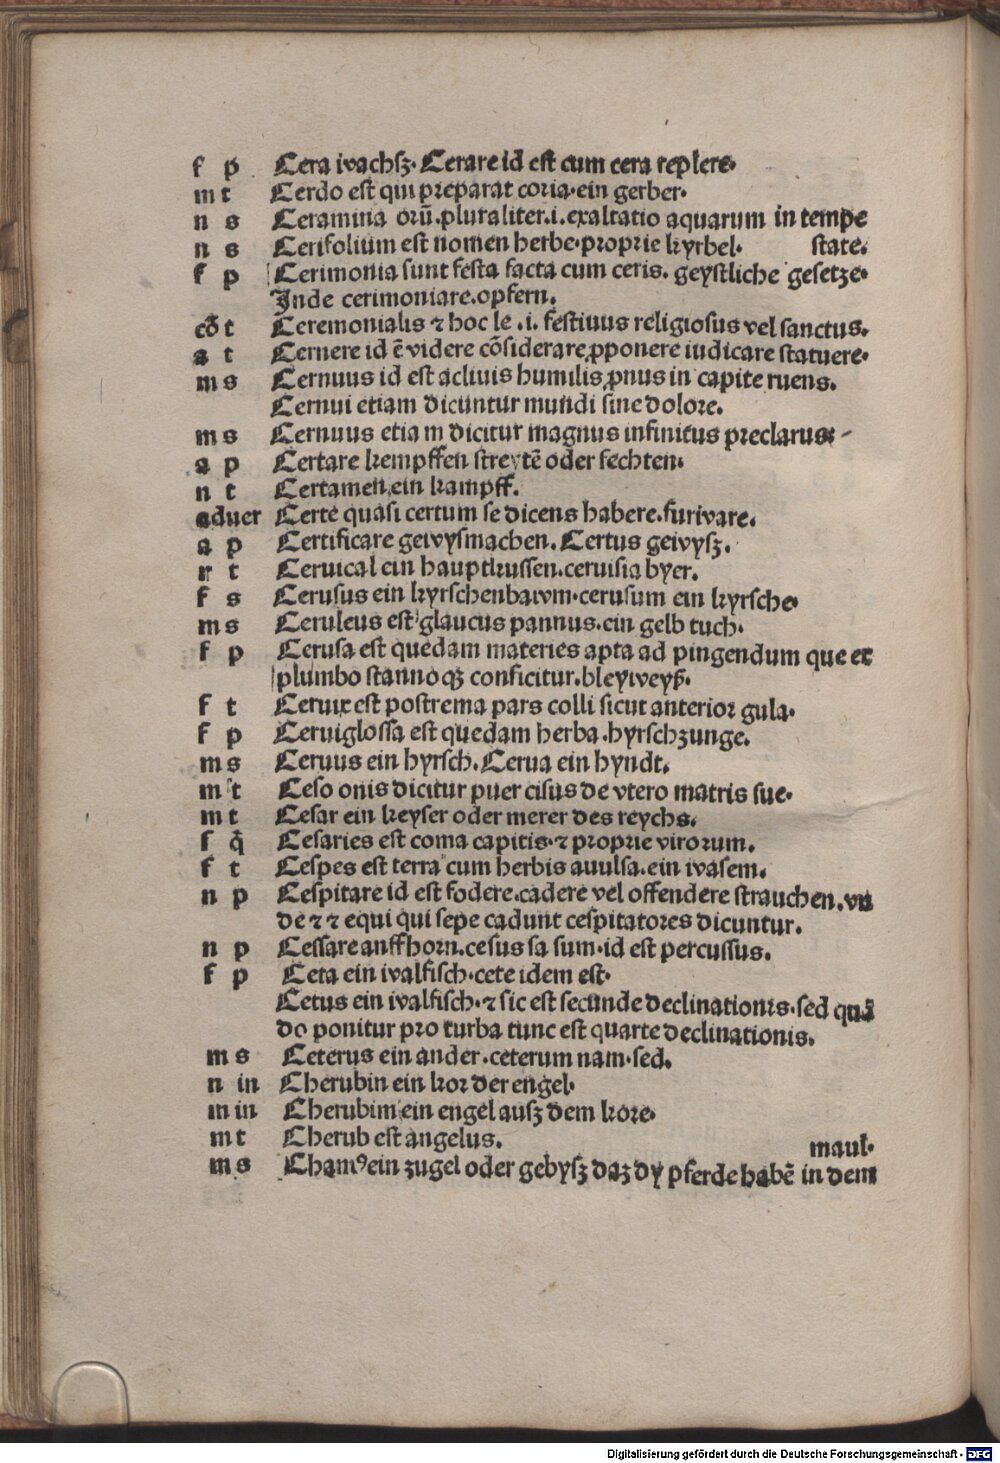 f p Cera wachsz. Cerare id est cum cera replere.
m t Cerdo est qui preparat coria. ein gerber.
n s Ceramina orū. pluraliter .i. exaltatio aquarum in tempe
n s Cerifolium est nomen herbe. proprie kyrbel. state.
f p Cerimonia sunt festa facta cum ceris. geystliche gesetze.
Inde cerimoniare. opfern.
cō t Ceremonialis ⁊ hoc le .i. festiuus religiosus vel sanctus.
a t Cernere id ē videre cōsiderare ꝓponere iudicare statuere.
m s Cernuus id est acliuis humilis ꝓnus in capite ruens.
Cernui etiam dicuntur mundi sine dolore.
m s Cernuus etiam dicitur magnus infinitus preclarus:
a p Certare kempffen streytē oder fechten.
n t Certamen. ein kampff.
aduer Certe quasi certum se dicens habere. furware.
a p Certificare gewysmachen. Certus gewysz.
n t Ceruical ein hauptkussen. ceruisia byer.
f s Cerusus ein kyrschenbawm. cerusum ein kyrsche.
m s Ceruleus est glaucus pannus. ein gelb tuch.
f p Cerusa est quedam materies apta ad pingendum que ex
plumbo stannoqꝫ conficitur. bleyweyß.
f t Ceruix est postrema pars colli sicut anterior gula.
f p Ceruiglossa est quedam herba. hyrschzunge.
m s Ceruus ein hyrsch. Cerua ein hyndt.
m t Ceso onis dicitur puer cisus de vtero matris sue.
m t Cesar ein keyser oder merer des reychs.
f q̄ Cesaries est coma capitis. ⁊ proprie virorum.
f t Cespes est terra cum herbis auulsa. ein wasem.
n p Cespitare id est fodere. cadere vel offendere strauchen. vn
de ⁊ ⁊ equi qui sepe cadunt cespitatores dicuntur.
n p Cessare auffhorn. cesus sa sum. id est percussus.
f p Ceta ein walfisch. cete idem est.
Cetus ein walfisch. ⁊ sic est secunde declinationis. sed quā
do ponitur pro turba tunc est quarte declinationis.
m s Ceterus ein ander. ceterum nam. sed.
n in Cherubin ein kor der engel.
m in Cherubim ein engel ausz dem kore.
m t Cherub est angelus. maul.
m s Chamꝰ ein zugel oder gebysz daz dy pferde habē in dem
Digitalisierung gefördert durch die Deutsche Forschungsgemeinschaft - DFG